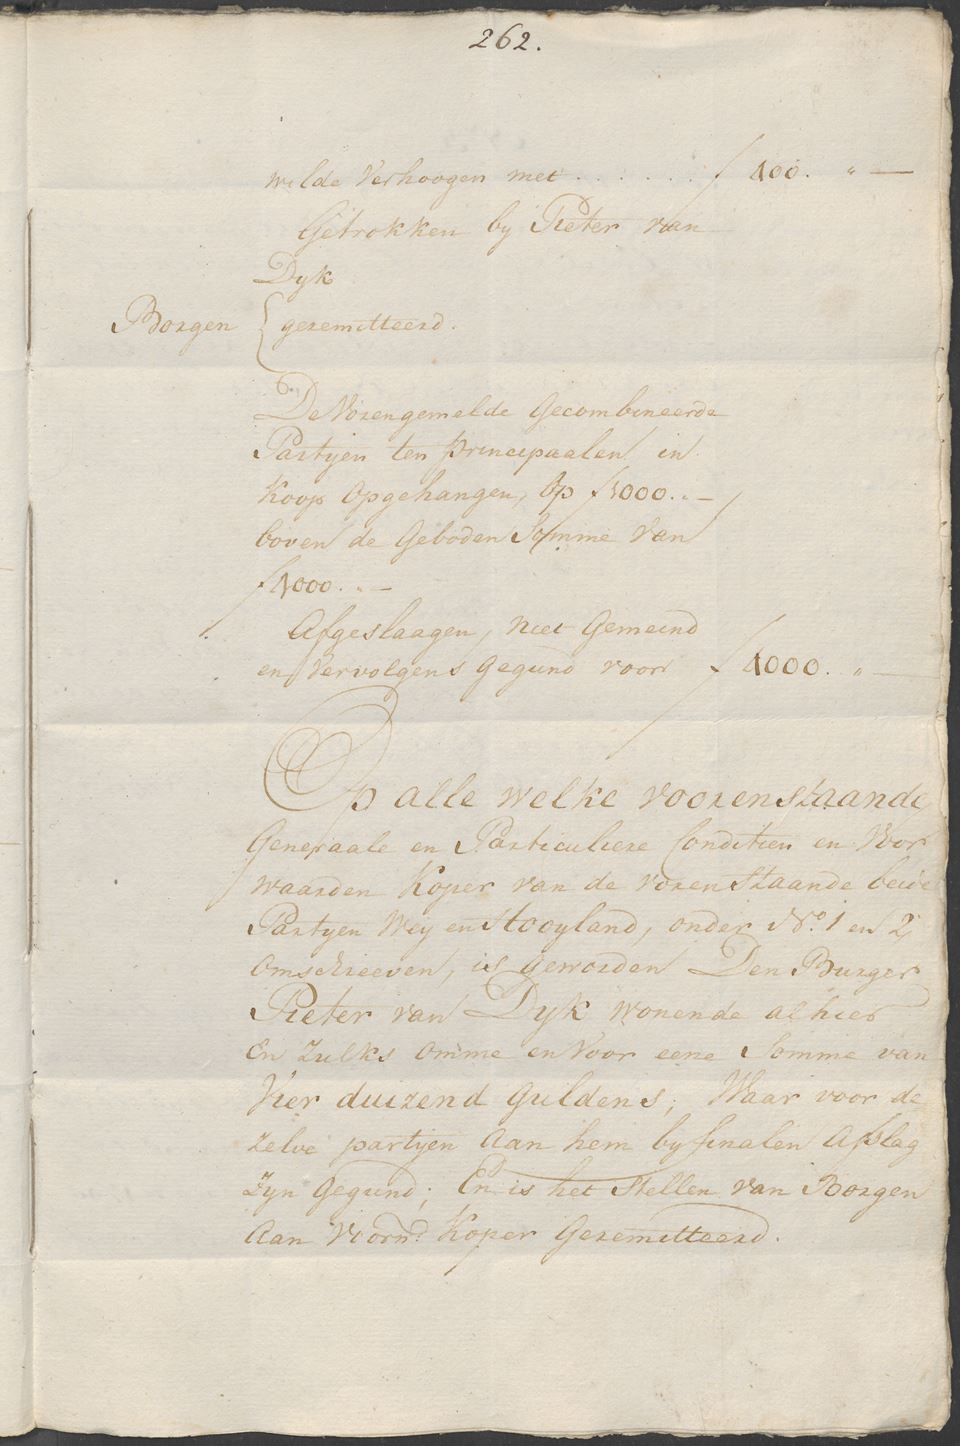 262.
wilde Verhoogen met . . . . . . ƒ 400. „ —
Getrokken by Pieter van
Dyk
Borgen { geremitteerd.
De Vorengemelde Gecombineerde
Partyen ten principaalen in
Koop Opgehangen, Op ƒ1000.„—
boven de Geboden Somme van
ƒ4000.„—
Afgeslaagen, Niet Gemeind
en Vervolgens Gegund voor ƒ 4000. „ —
Op alle welke voorenstaande
Generaale en Particuliere Conditien en Voor
waarden Koper van de voren Staande beide
Partyen Wey en Hooyland, onder No. 1 en 2,
omschreeven, is geworden Den Burger
Pieter van Dyk wonende alhier
En zulks omme en Voor eene Somme van
Vier duizend Guldens; Waar voor de
zelve partyen Aan hem by finalen Afslag
zyn Gegund; En is het Stellen van Borgen
Aan Voornd. Koper Geremitteerd.